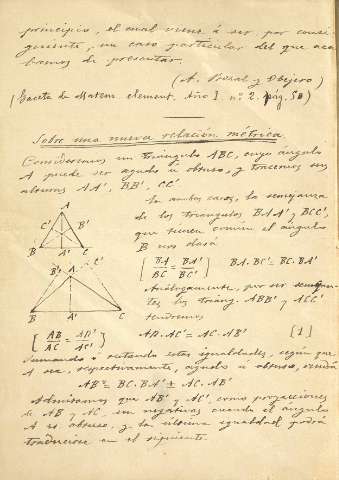 principio, el cual viene á ser por consi-
guiente, un caso particular del que aca-
bamos de presentar.
(A. Bozal y Obejero)
(Gaceta de Matem. element. Año I. nº 2. pág. 50)
Sobre una nueva relación métrica.
Consideremos un triángulo ABC, cuyo ángulo
A puede ser agudo u obtuso, y tracemos sus
alturas AA', BB', CC'
En ambos casos, la semejanza
de los triangulos BAA' y BCC',
que tienen común el ángulo
B nos dará
[BA/BC = BA'/BC'] BA·BC' = BC·BA'
Análogamente, por ser semejan-
tes los triáng. ABB' y ACC'
tendremos
[AB/AC = AB'/AC'] AB·AC' = AC·AB' [1]
Sumando ó restando estas igualdades, según que
A sea, respectivamente, agudo u obtuso, vendrá
AB² = BC·BA' ± AC·AB'
Admitamos que AB' y AC', como proyecciones
de AB y AC son negativas cuando el ángulo
A es obtuso, y la última igualdad podrá
traducirse en el siguiente.
A
C' B'
B A' C
B' A C'
B A' C